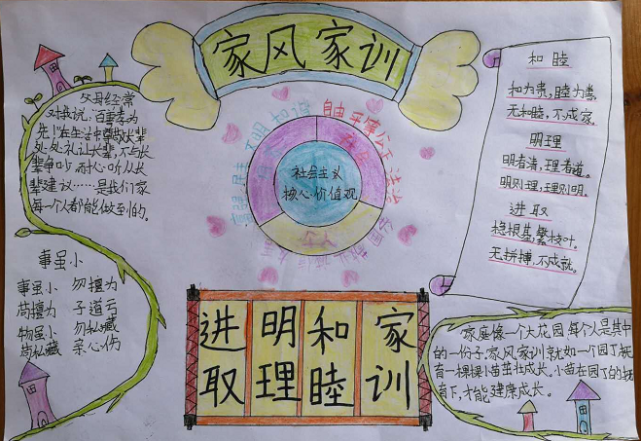 家风家训
父母经常
对我说，百事孝为
先！在生活中尊敬长辈
处处礼让长辈，不与长
辈争吵，耐心听从长
辈建议……是我们家
每一个人都能做至怕的。
事虽小
事虽小 勿擅为
苟擅为 子道亏
物虽小 勿私藏
苟私藏 亲心伤
富强 民主 文明 和谐
自由 平等 公正 法治
爱国 敬业 诚信 友善
社会主义
核心价值观
和睦
和为贵，睦为贵，
无和睦，不成家。
明理
明者清，理者道。
明则理，理则明。
进取
稳根基，繁枝叶。
无拼搏，不成就。
进 明 和 家
取 理 睦 训
家庭像一个大花园，每个人是其中
的一份子，家风家训亲就如一个园丁抚
育一棵棵小苗茁壮成长。小苗在园丁的抚
育下，才能健康成长。